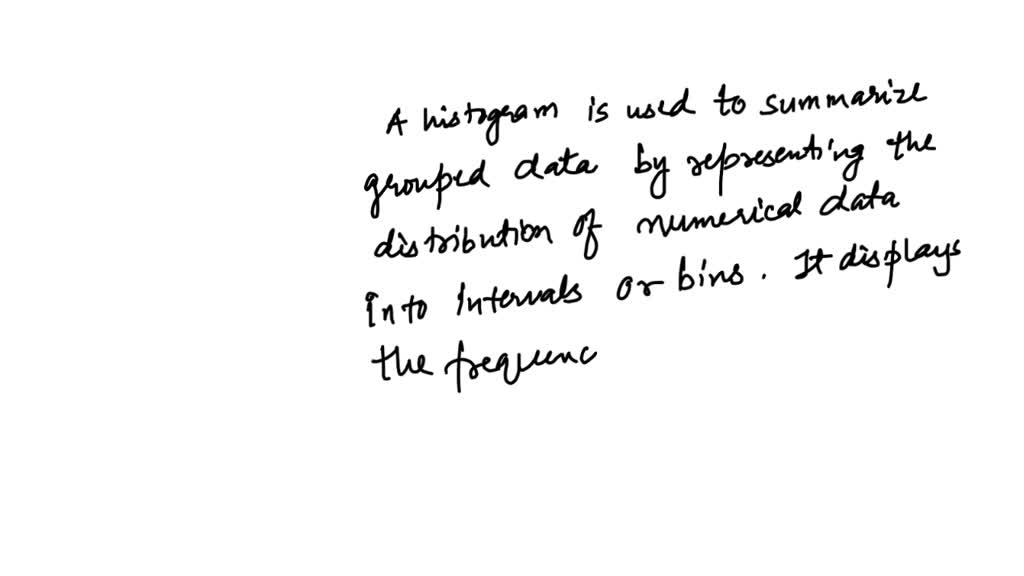 A histogram is used to summarize
grouped data by representing the
distribution of numerical data
into intervals or bins. It displays
the frequenc